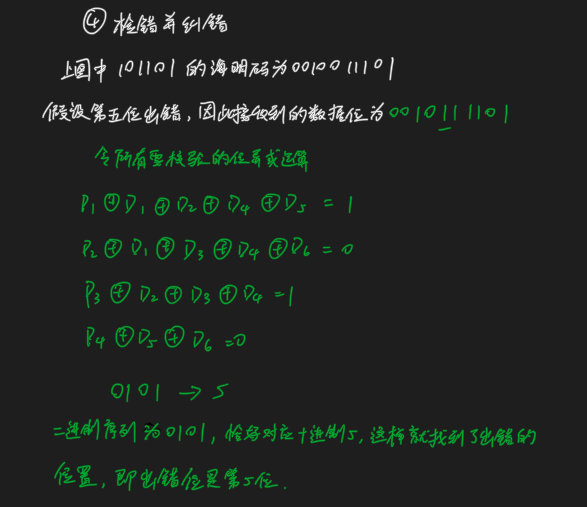 ④ 检错并纠错
上图中 101101 的海明码为 0010011101
假设第五位出错，因此接收到的数据位为 0010111101
令所有要校验的位异或运算
P₁⊕D₁⊕D₂⊕D₄⊕D₅ = 1
P₂⊕D₁⊕D₃⊕D₄⊕D₆ = 0
P₃⊕D₂⊕D₃⊕D₄ = 1
P₄⊕D₅⊕D₆ = 0
0101 → 5
二进制序列为 0101，恰好对应十进制5，这样就找到了出错的
位置，即出错位是第5位．